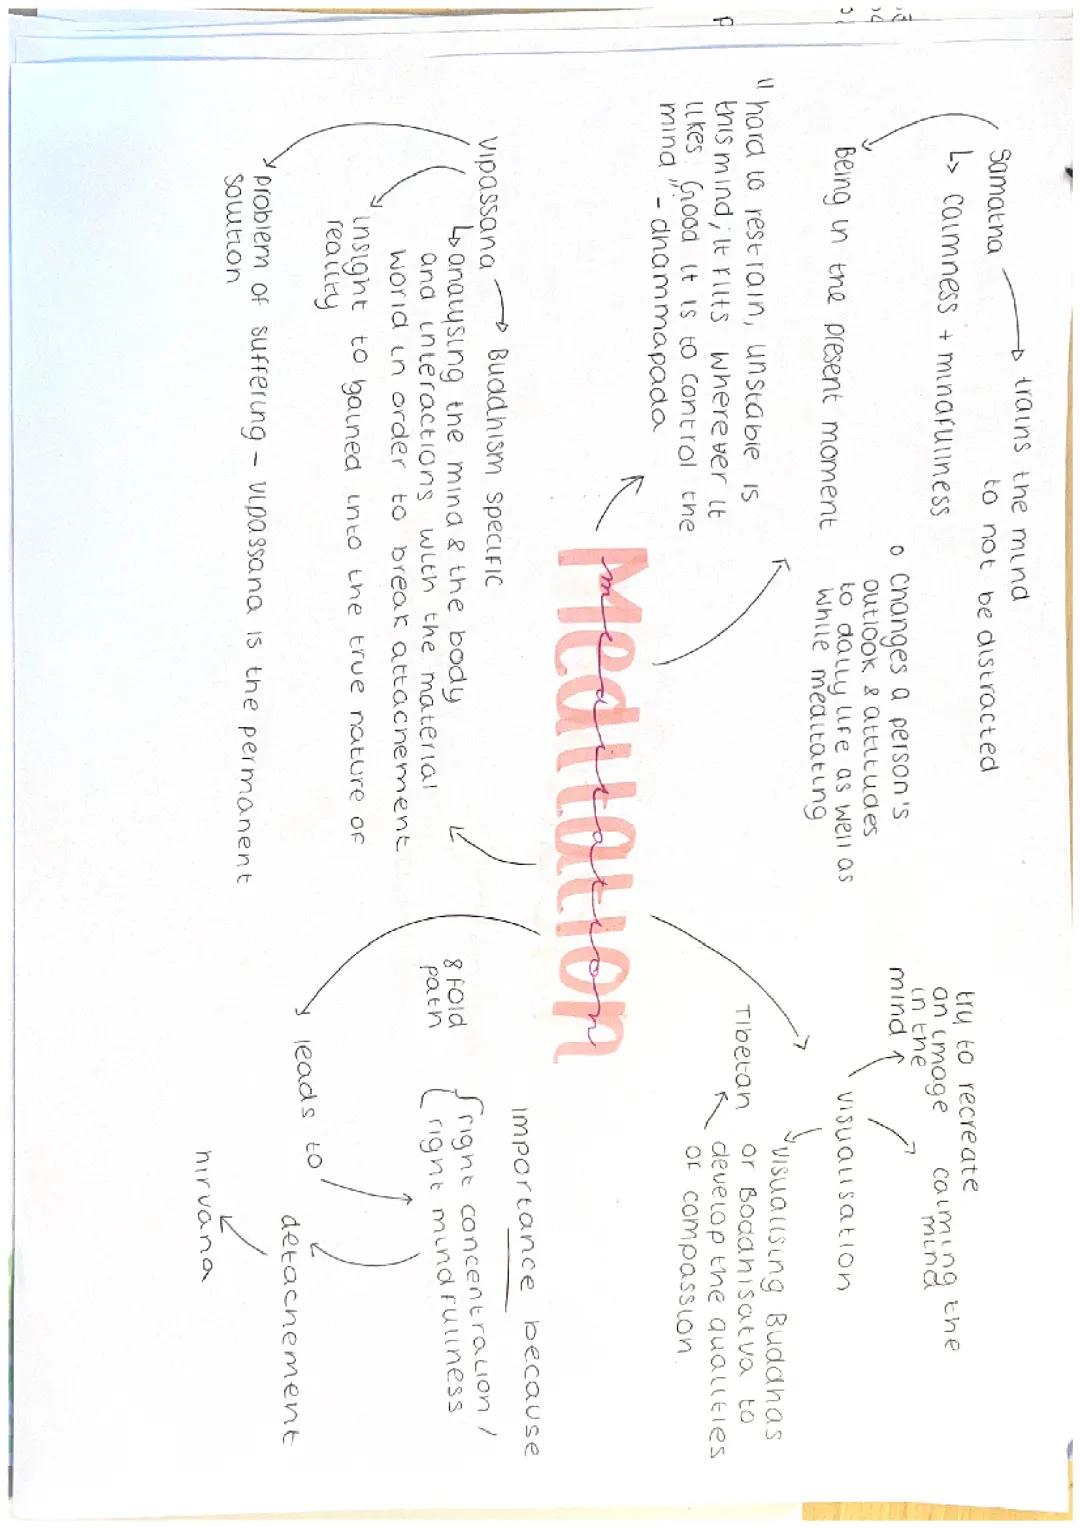 Samatha → trains the mind
to not be distracted
↳ calmness + mindfullness
Being in the present moment
o Changes a person's
outlook & attitudes
to daily life as well as
while meditating
"hard to restrain, unstable is
this mind; it flits wherever it
likes. Good it is to control the
mind" - dhammapada
try to recreate
an image
in the
mind
calming the
mind
visualisation
Tibetan
visualising Buddhas
or Boddhisatva to
develop the qualities
of compassion
Meditation
meditation
Vipassana → Buddhism specific
↳ analysing the mind & the body
and interactions with the material
world in order to break attachement
insight to gained into the true nature of
reality
problem of suffering - vipassana is the permanent
solution
importance because
8 fold
path
right concentration /
right mindfullness
leads to
detachement
nirvana